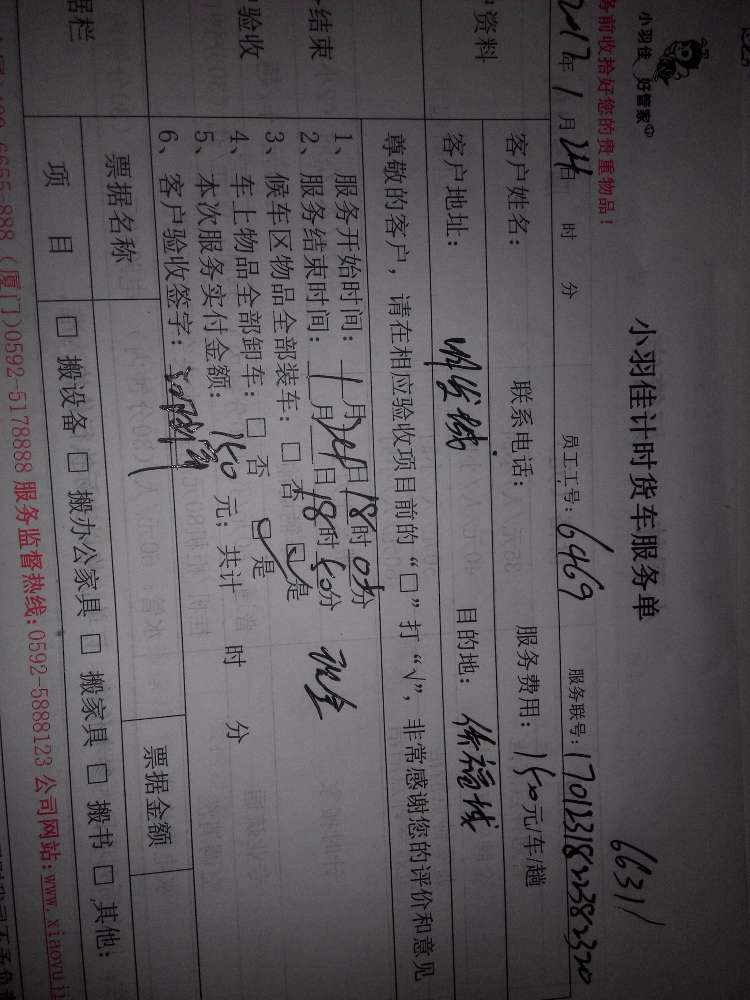 小羽佳 好管家
务前收拾好您的贵重物品!
小羽佳计时货车服务单
6631
2017年1月24日 时 分 员工工号: 6969 服务联号: 1701231822382320
户资料
客户姓名: 联系电话: 服务费用: 150元/车/趟
客户地址: 目的地: 保福城
尊敬的客户,请在相应验收项目前的“□”打“√”,非常感谢您的评价和意见
结束
户验收
1、服务开始时间: 1月24日18时05分
2、服务结束时间: 月 日18时50分
现金
3、候车区物品全部装车: □ 否 ☑ 是
4、车上物品全部卸车: □ 否 ☑ 是
5、本次服务实付金额: 150元; 共计 时 分
6、客户验收签字:
据栏
票据名称 票据金额
项 目 □ 搬设备 □ 搬办公家具 □ 搬家具 □ 搬书 □ 其他:
6655-888 (厦门)0592-5178888 服务监督热线:0592-5888123 公司网站:www.xiaoyuji